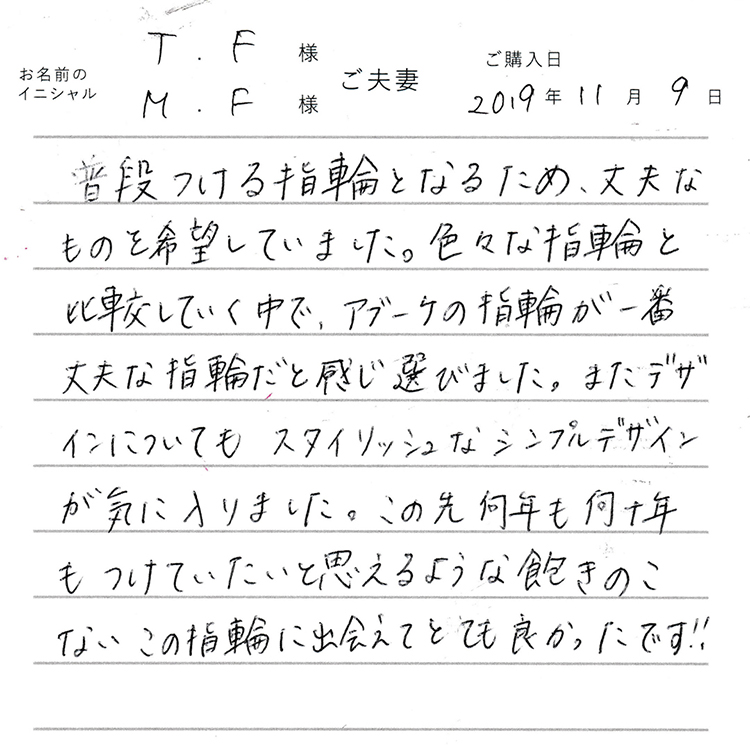 お名前の
イニシャル
T . F 様
M . F 様
ご夫妻
ご購入日
2019年11月9日
普段つける指輪となるため、丈夫な
ものを希望していました。色々な指輪と
比較していく中で、アブーケの指輪が一番
丈夫な指輪だと感じ選びました。またデザ
インについても スタイリッシュなシンプルデザイン
が気に入りました。この先何年も何十年
もつけていたいと思えるような飽きのこ
ないこの指輪に出会えてとても良かったです!!